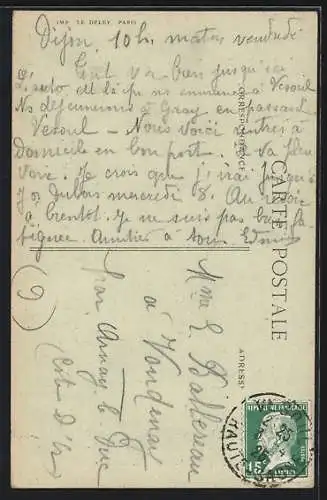 IMP. LE DELEY, PARIS
Dijon, 10h matin vendredi
Tout va bien jusqu'ici
L'auto est là qui ns emmène à Vesoul
Ns déjeunerons à Gray en passant
Vesoul - Nous voici rentrés à
domicile en bon port. Il va bien
Je crois que j'irai jusqu'à
Dubois mercredi 8. Au revoir
à bientôt. Je ne suis pas bien fa-
tiguée. Amitiés à tous. Edmée
CORRESPONDANCE
CARTE POSTALE
ADRESSE
(9)
Mme L. Ballereau
à Vandenay
par Arnay le Duc
(Côte d'Or)
HAUTE-S
25
REPUBLIQUE FRANÇAISE
15c
POSTES